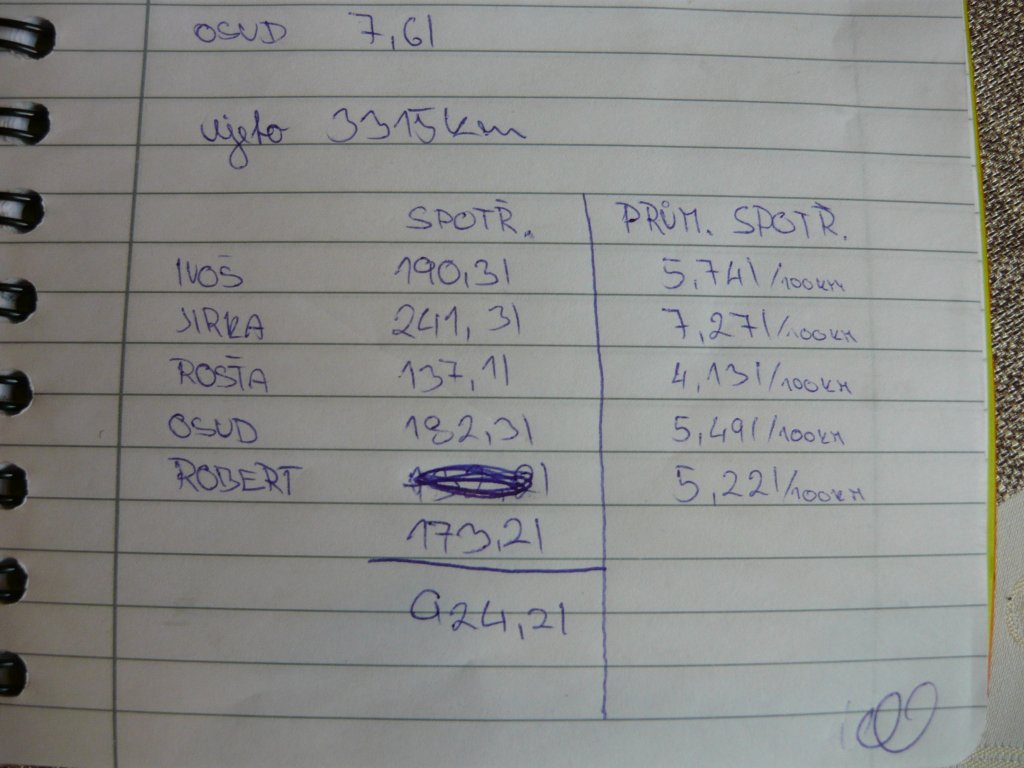 OSUD 7,6l
ujeto 3315km
SPOTŘ. PRŮM. SPOTŘ.
IVOŠ 190,3l 5,74l/100KM
JIRKA 241,3l 7,27l/100KM
ROSŤA 137,1l 4,13l/100KM
OSUD 182,3l 5,49l/100KM
ROBERT 5,22l/100KM
173,2l
924,2l